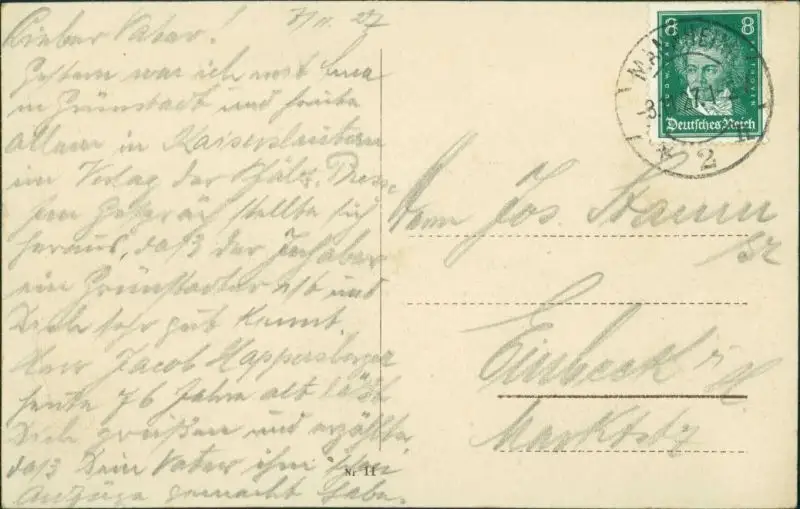 7/11.27
Lieber Vater!
Gestern war ich erst
in Grünstadt und heute
allem in Kaiserslautern
im Verlag der Pfälz. Presse
Gespräch stellte sich
heraus, daß der Inhaber
ein Grünstadter ist und
Dich sehr gut kennt.
Herr Jacob Happersberger
heute 76 Jahre alt läßt
Dich grüßen und erzählte
daß Dein Vater ihm
Anzüge gemacht habe.
8 8
Deutsches Reich
MANNHEIM
2
Herrn Jos. Stamm
Einbeck
Nr. 11